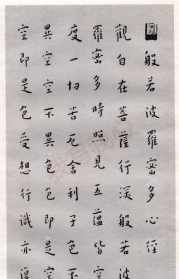 般若波羅蜜多心經
觀自在菩薩行深般若波
羅蜜多時照見五蘊皆空
度一切苦厄舍利子色不
異空空不異色色即是空
空即是色受想行識亦復